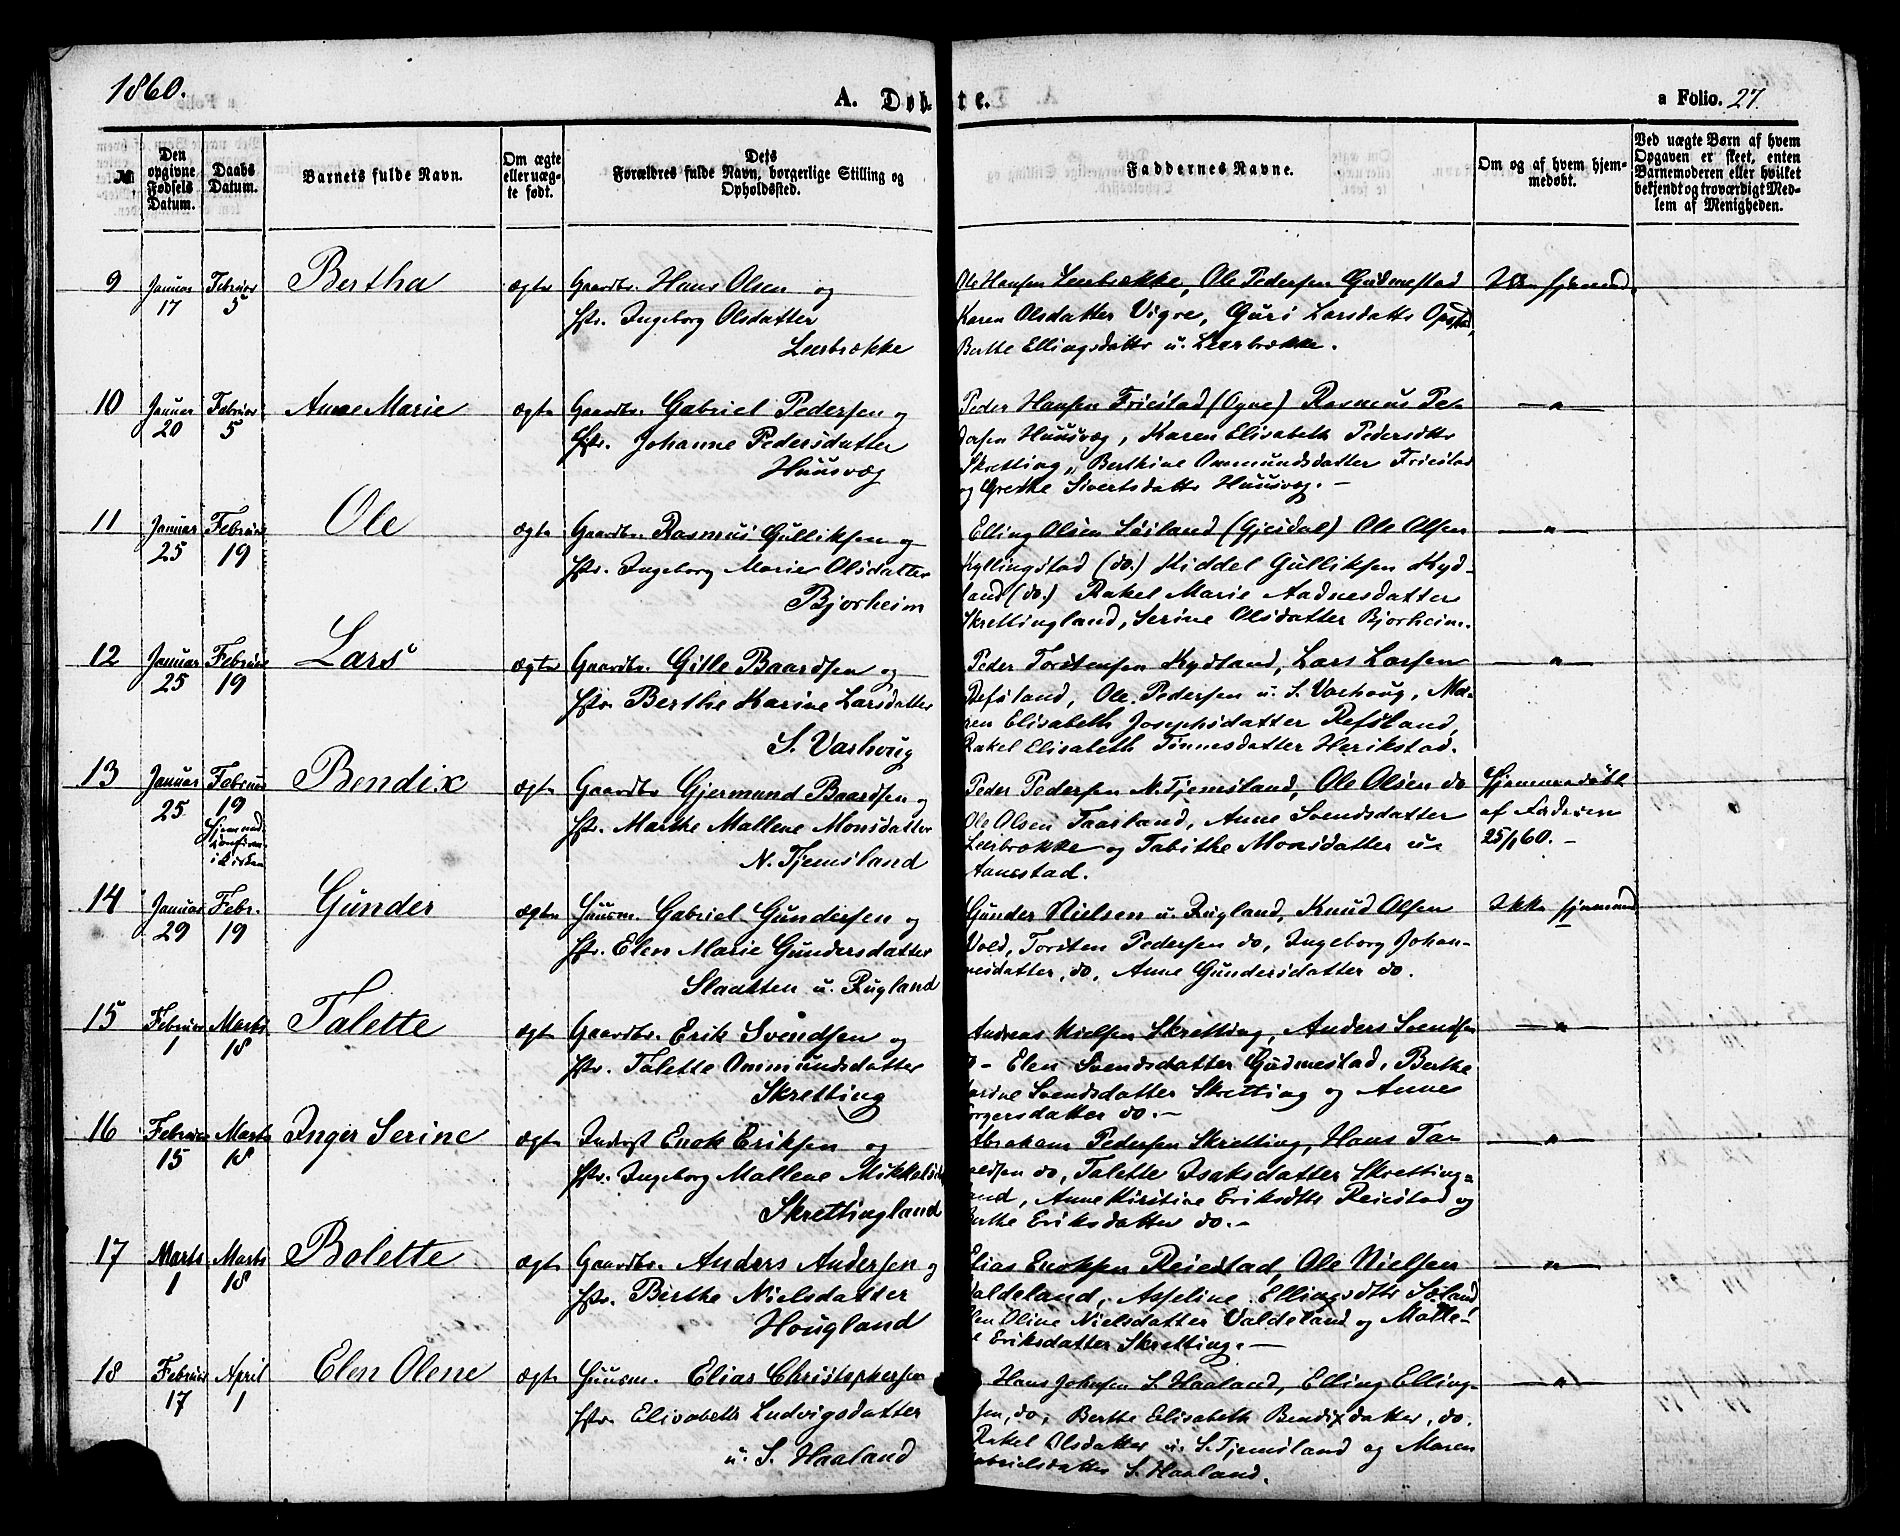 1860.
A. Døbte.
a Folio. 27.
№
Den opgivne Fødsels Datum.
Daabs Datum.
Barnets fulde Navn.
Om ægte eller uægte født.
Dets Forældres fulde Navn, borgerlige Stilling og Opholdssted.
Faddernes Navne.
Om og af hvem hjemmedøbt.
Ved uægte Børn af hvem Opgaven er skeet, enten Barnemoderen eller hvilket bekjendt og troværdigt Medlem af Menigheden.
9 Januar 17 Februar 5 Bertha ægte Gaardbr. Hans Olsen og
Hstr. Ingeborg Olsdatter
Leerbrække
Ole Hansen Leerbrække, Ole Pedersen Gudmestad
Karen Olsdatter Vigre, Guri Larsdattr Opstad,
Berthe Ellingsdattr u. Leerbrække.
Ikke hjemmd.
10 Januar 20 Februar 5 Anne Marie ægte Gaardbr. Gabriel Pedersen og
Hstr. Johanne Pedersdatter
Huusvæg
Peder Hansen Friestad (Ogne) Rasmus Pe-
dersen Huusvæg, Karen Elisabeth Pedersdttr
Skretting, Berthine Ommundsdatter Friestad
og Grethe Sivertsdattr Huusvæg. -
— " —
11 Januar 25 Februar 19 Ole ægte Gaardbr. Rasmus Gulliksen og
Hstr. Ingeborg Marie Olsdatter
Bjorheim
Elling Olsen Søiland (Gjesdal) Ole Olsen
Kyllingstad (do.) Kiddel Gulliksen Kyd-
land (do.) Rakel Marie Aadnesdatter
Skrettingland, Serine Olsdatter Bjorheim.
— " —
12 Januar 25 Februar 19 Lars ægte Gaardbr. Gitle Baardsen og
Hstr. Berthe Karine Larsdatter
S. Varhoug
Peder Torstensen Kydland, Lars Larsen
Refsland, Ole Pedersen u. S. Varhoug, Ma-
ren Elisabeth Josephsdatter Refsland,
Rakel Elisabeth Tønnesdatter Herikstad.
— " —
13 Januar 25 Februar 19 Bendix ægte Gaardbr Gjermund Baardsen og
Hstr. Marthe Mallene Monsdatter
N. Tjemsland
Peder Pedersen N. Tjemsland, Ole Olsen do
Ole Olsen Taarland, Anne Svendsdatter
Leerbrække og Tabithe Monsdatter u.
Aanestad.
Hjemmedøbt
af Faderen
25/1 60. -
14 Januar 29 Febr. 19 Gunder ægte Huusm. Gabriel Gundersen og
Hstr. Elen Marie Gundersdatter
Slaatten u. Rugland
Gunder Nielsen u. Rugland, Knud Olsen
Vold, Torsten Pedersen do, Ingeborg Johan-
nesdatter, do, Anne Gundersdatter do.
Ikke hjemmd
15 Februar 1 Marts 18 Talette ægte Gaardbr. Erik Svendsen og
Hstr. Talette Ommundsdatter
Skretting
Andreas Nielsen Skretting, Anders Svendsen
do - Elen Svendsdatter Gudmestad, Berthe
Karine Svendsdatter Skretting og Anne
Torgersdatter do. -
— " —
16 Februar 15 Marts 18 Inger Serine ægte Inderst Enok Eriksen og
Hstr. Ingeborg Mallene Mikkelsd
Skrettingland
Abraham Pedersen Skretting, Hans Tar
aldsen do, Talette Isaksdatter Skretting-
land, Anne Kirstine Eriksdttr Reiestad og
Berthe Eriksdatter do. -
— " —
17 Marts 1 Marts 18 Bolette ægte Gaardbr. Anders Andersen og
Hstr. Birthe Nielsdatter
Hougland
Elias Enoksen Reiestad, Ole Nielsen
Valdeland, Asseline Ellingsdttr Søiland
Elen Oline Nielsdatter Valdeland og Malle-
ne Eriksdatter Skretting. —
— " —
18 Februar 17 April 1 Elen Olene ægte Huusm. Elias Christophersen
Hstr. Elisabeth Ludvigsdatter
u. S. Haaland
Hans Johnsen S. Haaland, Elling Elling-
sen, do, Berthe Elisabeth Bendixdatter, do.
Rakel Olsdatter u. S. Tjemsland og Maren
Gabrielsdatter S. Haaland.
— " —